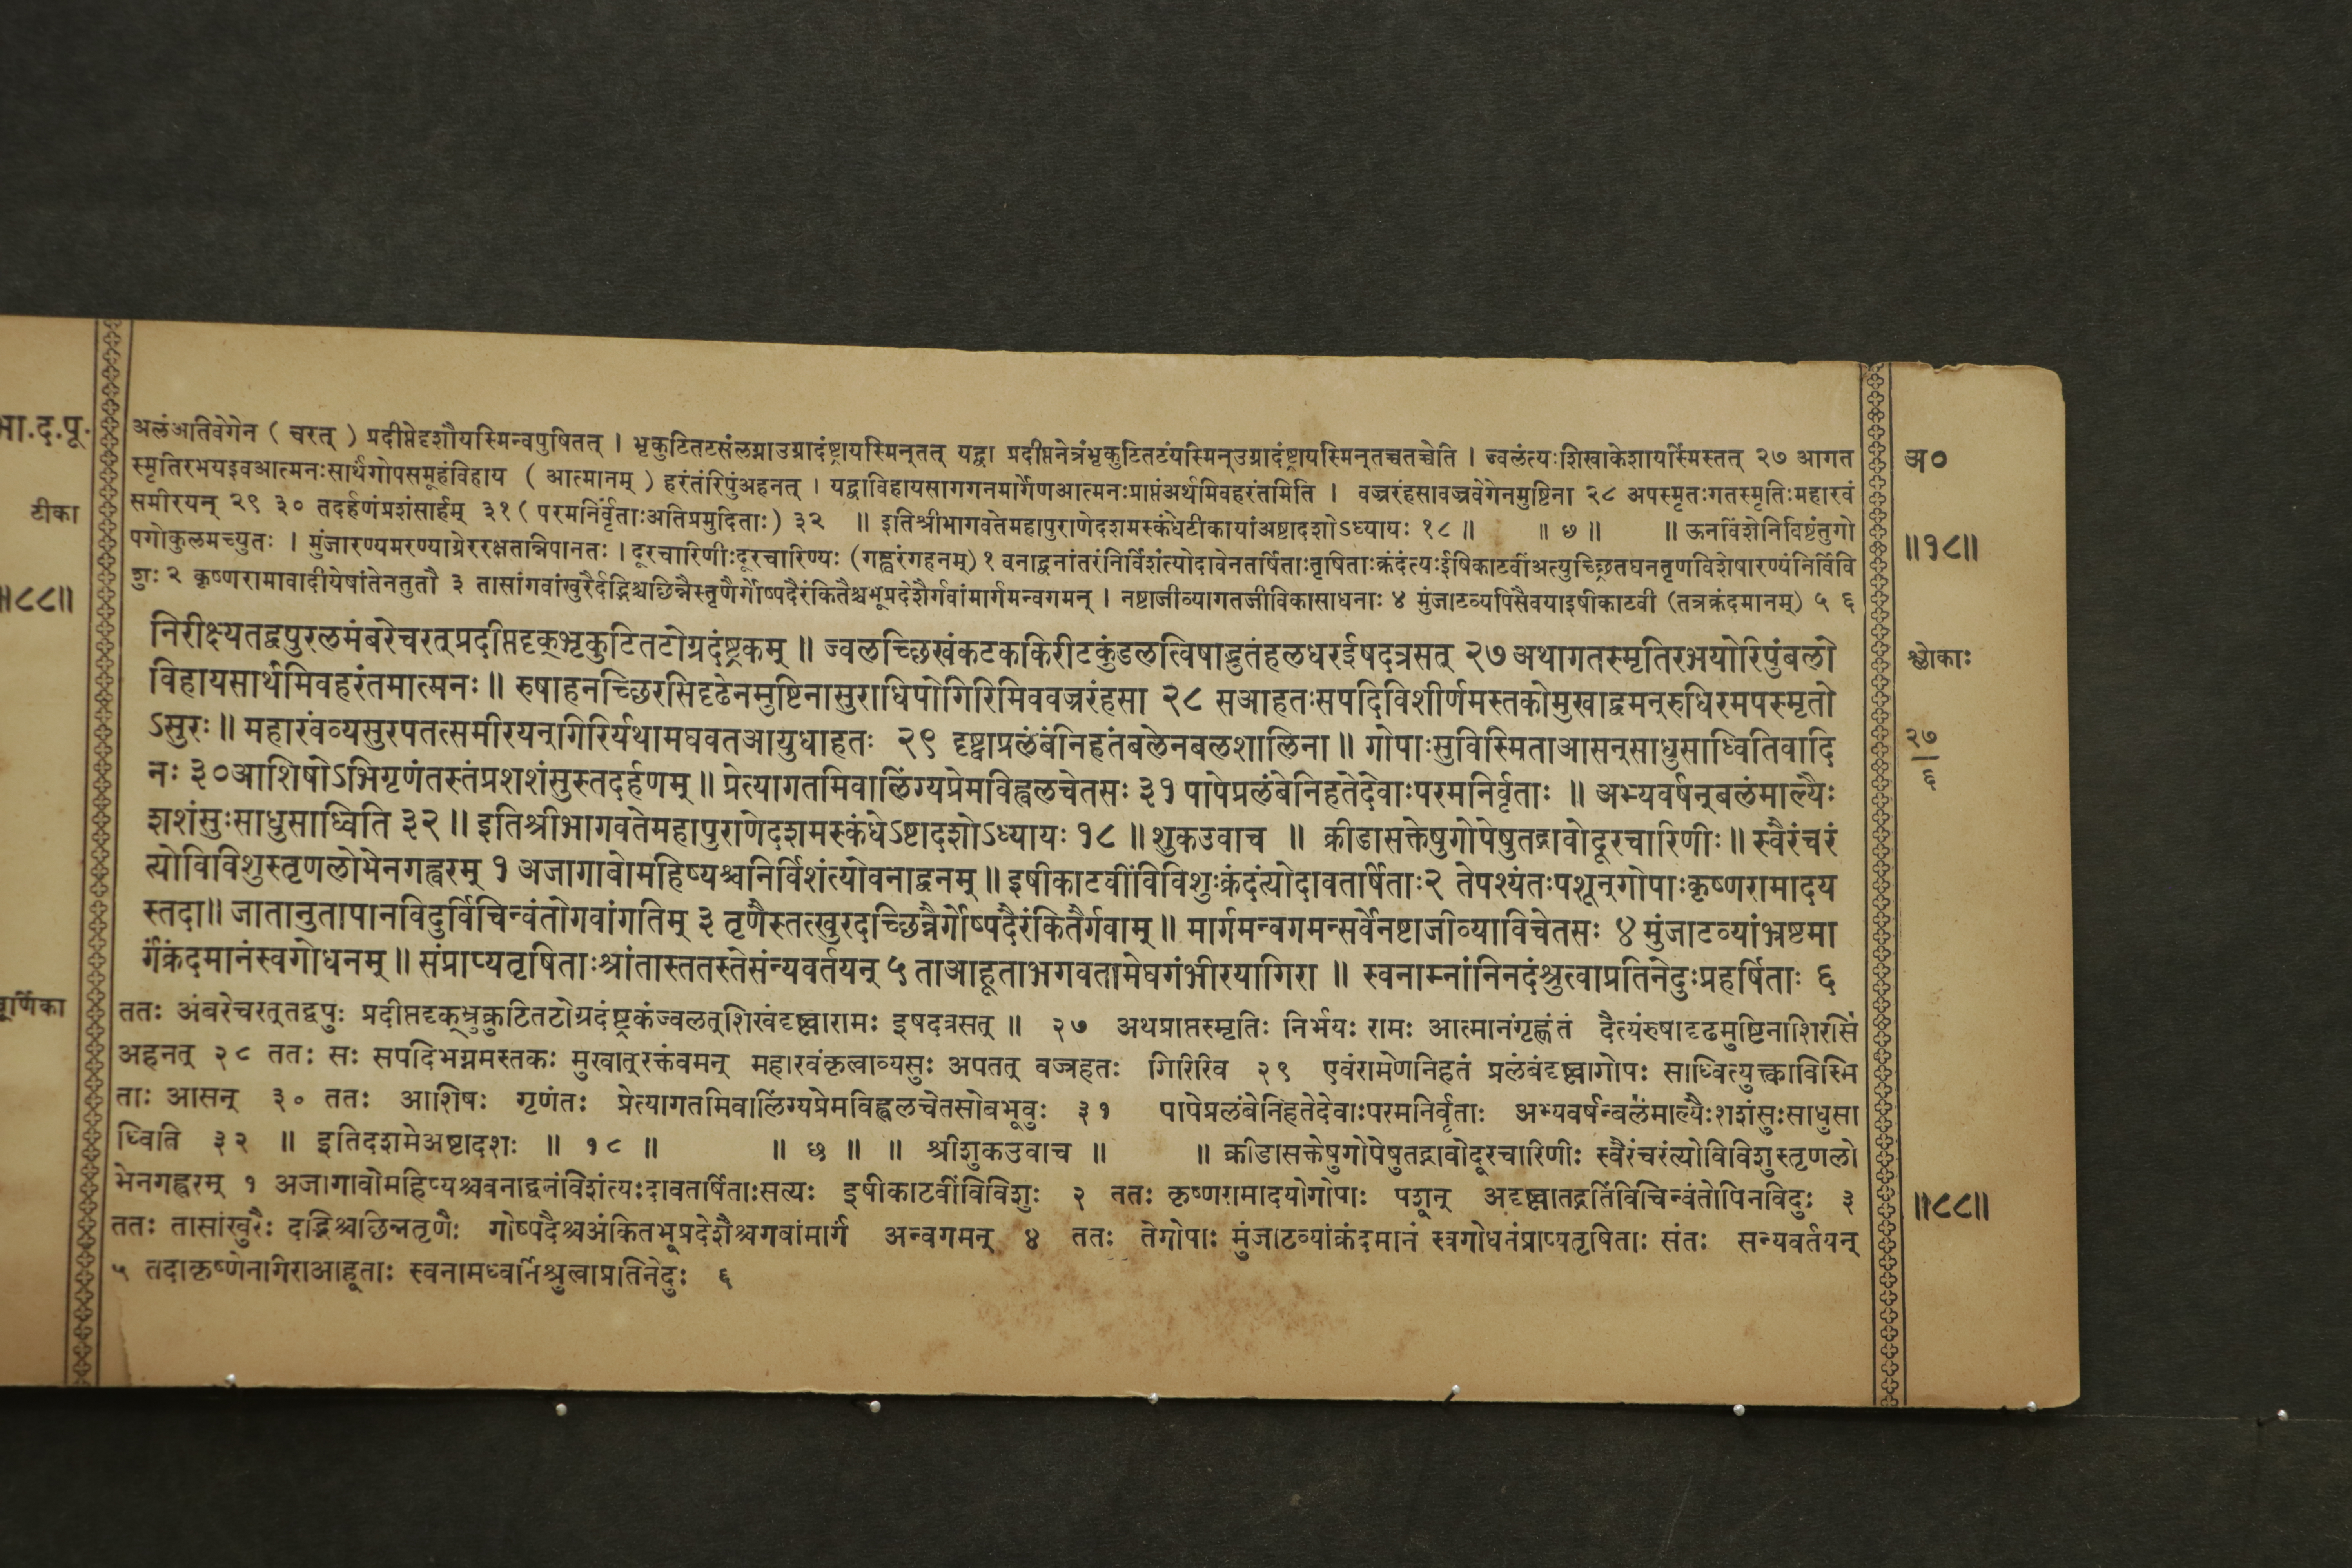 भा.द.पू.
टीका
॥८८॥
अलंअतिवेगेन ( चरत् ) प्रदीप्तेदृशौयस्मिन्वपुषितत् । भृकुटितटसंलग्नाउग्रादंष्ट्रायस्मिन्तत् यद्वा प्रदीप्तनेत्रंभृकुटितटंयस्मिन्उग्रादंष्ट्रायस्मिन्तच्चतच्चेति । ज्वलंत्यःशिखाकेशायस्मिंस्तत् २७ आगत
स्मृतिरभयइवआत्मनःसार्थंगोपसमूहंविहाय ( आत्मानम् ) हरंतंरिपुंअहनत् । यद्वाविहायसागगनमार्गेणआत्मनःप्राप्तंअर्थमिवहरंतमिति । वज्ररंहसावज्रवेगेनमुष्टिना २८ अपस्मृतःगतस्मृतिःमहारवं
समीरयन् २९ ३० तदर्हणंप्रशंसार्हम् ३१ ( परमनिर्वृताःअतिप्रमुदिताः) ३२ ॥ इतिश्रीभागवतेमहापुराणेदशमस्कंधेटीकायांअष्टादशोऽध्यायः १८ ॥ ॥ ७ ॥ ॥ ऊनविंशेनिविष्टंतुगो
पगोकुलमच्युतः । मुंजारण्यमरण्याग्नेररक्षतान्निपानतः । दूरचारिणीःदूरचारिण्यः (गह्वरंगहनम्) १ वनाद्वनांतरंनिर्विशंत्योदावेनतर्षिताःतृषिताःक्रंदंत्यःईषिकाटवींअत्युच्छ्रितघनतृणविशेषारण्यंनिर्विवि
शुः २ कृष्णरामावादीयेषांतेनतुतौ ३ तासांगवांखुरैर्दद्भिश्चछिन्नैस्तृणैर्गोष्पदैरंकितैश्चभूप्रदेशैर्गवांमार्गमन्वगमन् । नष्टाजीव्यागतजीविकासाधनाः ४ मुंजाटव्यपिसैवयाइषीकाटवी (तत्रक्रंदमानम्) ५ ६
निरीक्ष्यतद्वपुरलमंबरेचरत्प्रदीप्तदृक्भ्रृकुटितटोग्रदंष्ट्रकम् ॥ ज्वलच्छिखंकटककिरीटकुंडलत्विषाद्भुतंहलधरईषदत्रसत् २७ अथागतस्मृतिरभयोरिपुंबलो
विहायसार्थमिवहरंतमात्मनः ॥ रुषाहनच्छिरसिदृढेनमुष्टिनासुराधिपोगिरिमिववज्ररंहसा २८ सआहतःसपदिविशीर्णमस्तकोमुखाद्वमन्रुधिरमपस्मृतो
ऽसुरः ॥ महारवंव्यसुरपतत्समीरयन्गिरिर्यथामघवतआयुधाहतः २९ दृष्ट्वाप्रलंबंनिहतंबलेनबलशालिना ॥ गोपाःसुविस्मिताआसन्साधुसाध्वितिवादि
नः ३० आशिषोऽभिगृणंतस्तंप्रशशंसुस्तदर्हणम् ॥ प्रेत्यागतमिवालिंग्यप्रेमविह्वलचेतसः ३१ पापेप्रलंबेनिहतेदेवाःपरमनिर्वृताः ॥ अभ्यवर्षन्बलंमाल्यैः
शशंसुःसाधुसाध्विति ३२ ॥ इतिश्रीभागवतेमहापुराणेदशमस्कंधेऽष्टादशोऽध्यायः १८ ॥ शुकउवाच ॥ क्रीडासक्तेषुगोपेषुतद्गावोदूरचारिणीः ॥ स्वैरंचरं
त्योविविशुस्तृणलोभेनगह्वरम् १ अजागावोमहिष्यश्चनिर्विशंत्योवनाद्वनम् ॥ इषीकाटवींविविशुःक्रंदंत्योदावतर्षिताः२ तेपश्यंतःपशून्गोपाःकृष्णरामादय
स्तदा॥ जातानुतापानविदुर्विचिन्वंतोगवांगतिम् ३ तृणैस्तत्खुरदच्छिन्नैर्गोष्पदैरंकितैर्गवाम् ॥ मार्गमन्वगमन्सर्वेनष्टाजीव्याविचेतसः ४ मुंजाटव्यांभ्रष्टमा
र्गंक्रंदमानंस्वगोधनम् ॥ संप्राप्यतृषिताःश्रांतास्ततस्तेसंन्यवर्तयन् ५ ताआहूताभगवतामेघगंभीरयागिरा ॥ स्वनाम्नांनिनदंश्रुत्वाप्रतिनेदुःप्रहर्षिताः ६
चूर्णिका
ततः अंबरेचरत्तद्वपुः प्रदीप्तदृक्भ्रुकुटितटोग्रदंष्ट्रकंज्वलत्शिखंदृष्ट्वारामः इषदत्रसत् ॥ २७ अथप्राप्तस्मृतिः निर्भयः रामः आत्मानंगृह्णंतं दैत्यंरुषादृढमुष्टिनाशिरसि
अहनत् २८ ततः सः सपदिभग्नमस्तकः मुखात्रक्तंवमन् महारवंकृत्वाव्यसुः अपतत् वज्रहतः गिरिरिव २९ एवंरामेणनिहतं प्रलंबंदृष्ट्वागोपः साध्वित्युक्त्वाविस्मि
ताः आसन् ३० ततः आशिषः गृणंतः प्रेत्यागतमिवालिंग्यप्रेमविह्वलचेतसोबभूवुः ३१ पापेप्रलंबेनिहतेदेवाःपरमनिर्वृताः अभ्यवर्षन्बलंमाल्यैःशशंसुःसाधुसा
ध्विति ३२ ॥ इतिदशमेअष्टादशः ॥ १८ ॥ ॥ ७ ॥ ॥ श्रीशुकउवाच ॥ ॥ क्रीडासक्तेषुगोपेषुतद्गावोदूरचारिणीः स्वैरंचरंत्योविविशुस्तृणलो
भेनगह्वरम् १ अजागावोमहिष्यश्चवनाद्वनंविशंत्यःदावतर्षिताःसत्यः इषीकाटवींविविशुः २ ततः कृष्णरामादयोगोपाः पशून् अदृष्ट्वातद्गतिंविचिन्वंतोपिनविदुः ३
ततः तासांखुरैः दद्भिश्चछिन्नतृणैः गोष्पदैश्चअंकितभूप्रदेशैश्चगवांमार्गं अन्वगमन् ४ ततः तेगोपाः मुंजाटव्यांक्रंदमानं स्वगोधनंप्राप्यतृषिताः संतः सन्यवर्तयन्
५ तदाकृष्णेनगिराआहूताः स्वनामध्वनिंश्रुत्वाप्रतिनेदुः ६
अ०
॥१८॥
श्लोकाः
२७
६
॥८८॥